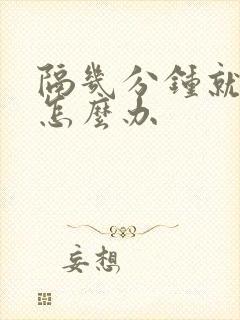 隔幾分鍾就
怎麼办
妄想